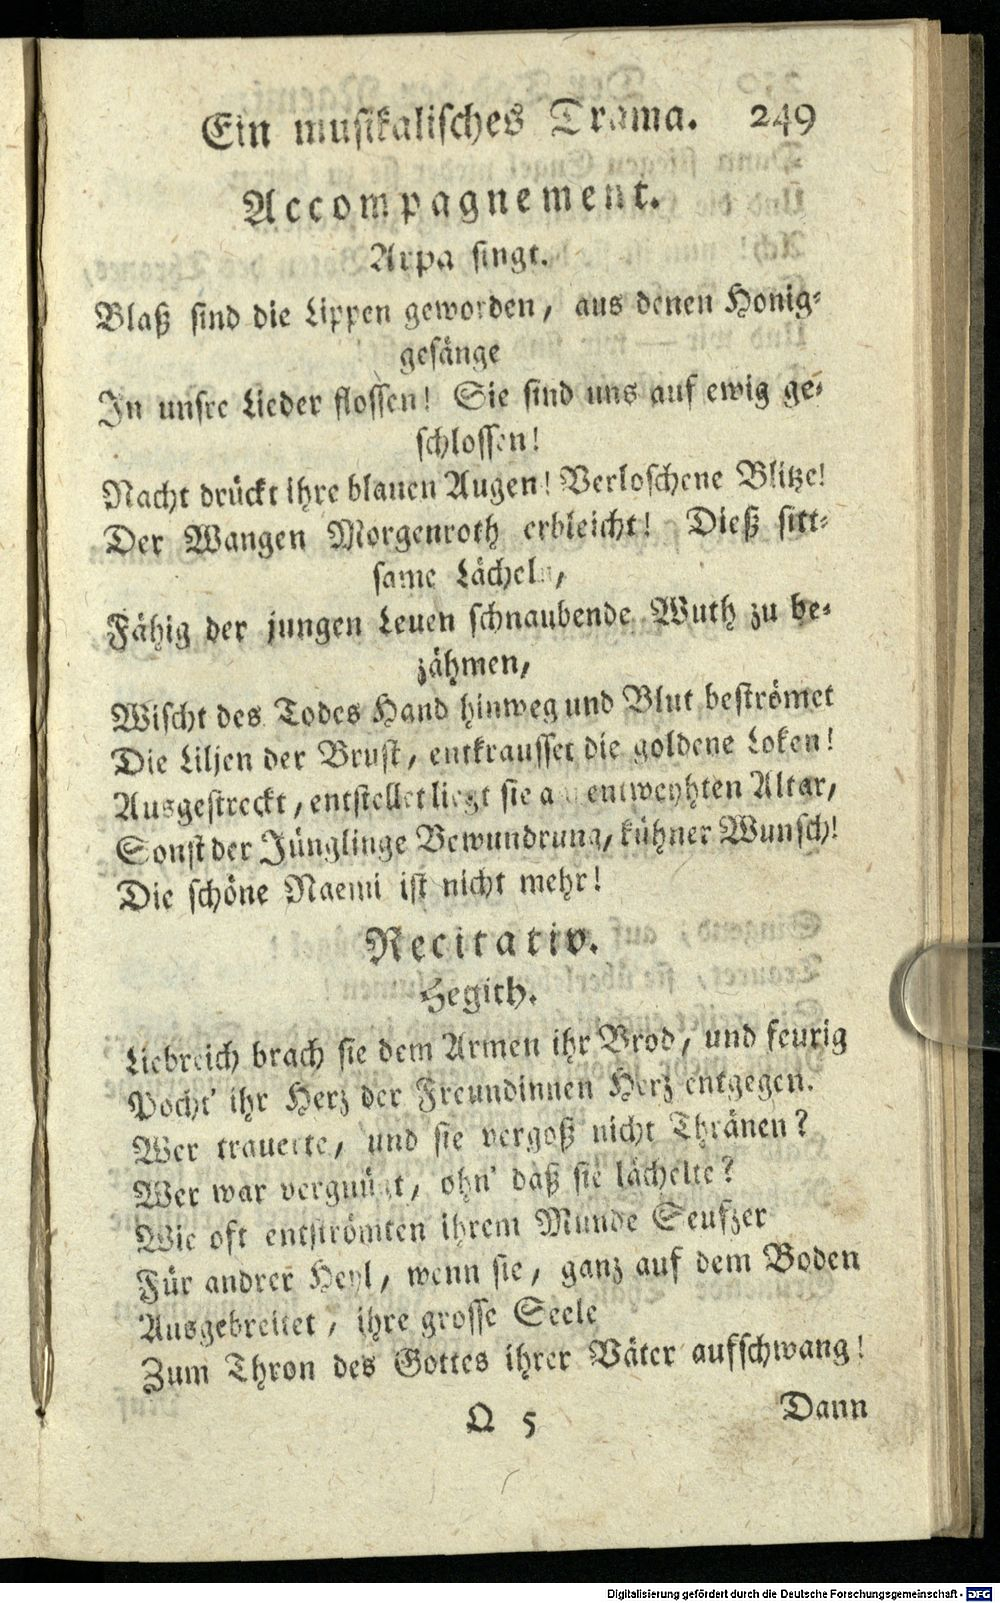 Ein musikalisches Drama. 249
Accompagnement.
Arpa singt.
Blaß sind die Lippen geworden, aus denen Honig-
gesänge
In unsre Lieder flossen! Sie sind uns auf ewig ge-
schlossen!
Nacht drückt ihre blauen Augen! Verloschene Blitze!
Der Wangen Morgenroth erbleicht! Dieß sitt-
same Lächeln,
Fähig der jungen Leuen schnaubende Wuth zu be-
zähmen,
Wischt des Todes Hand hinweg und Blut beströmet
Die Liljen der Brust, entkrausset die goldene Loken!
Ausgestreckt, entstellet liegt sie am entweyhten Altar,
Sonst der Jünglinge Bewundrung, kühner Wunsch!
Die schöne Naemi ist nicht mehr!
Recitativ.
Hegith.
Liebreich brach sie dem Armen ihr Brod, und feurig
Pocht' ihr Herz der Freundinnen Herz entgegen.
Wer trauerte, und sie vergoß nicht Thränen?
Wer war vergnügt, ohn' daß sie lächelte?
Wie oft entströmten ihrem Munde Seufzer
Für andrer Heyl, wenn sie, ganz auf dem Boden
Ausgebreitet, ihre grosse Seele
Zum Thron des Gottes ihrer Väter aufschwang!
Q 5 Dann
Digitalisierung gefördert durch die Deutsche Forschungsgemeinschaft - DFG